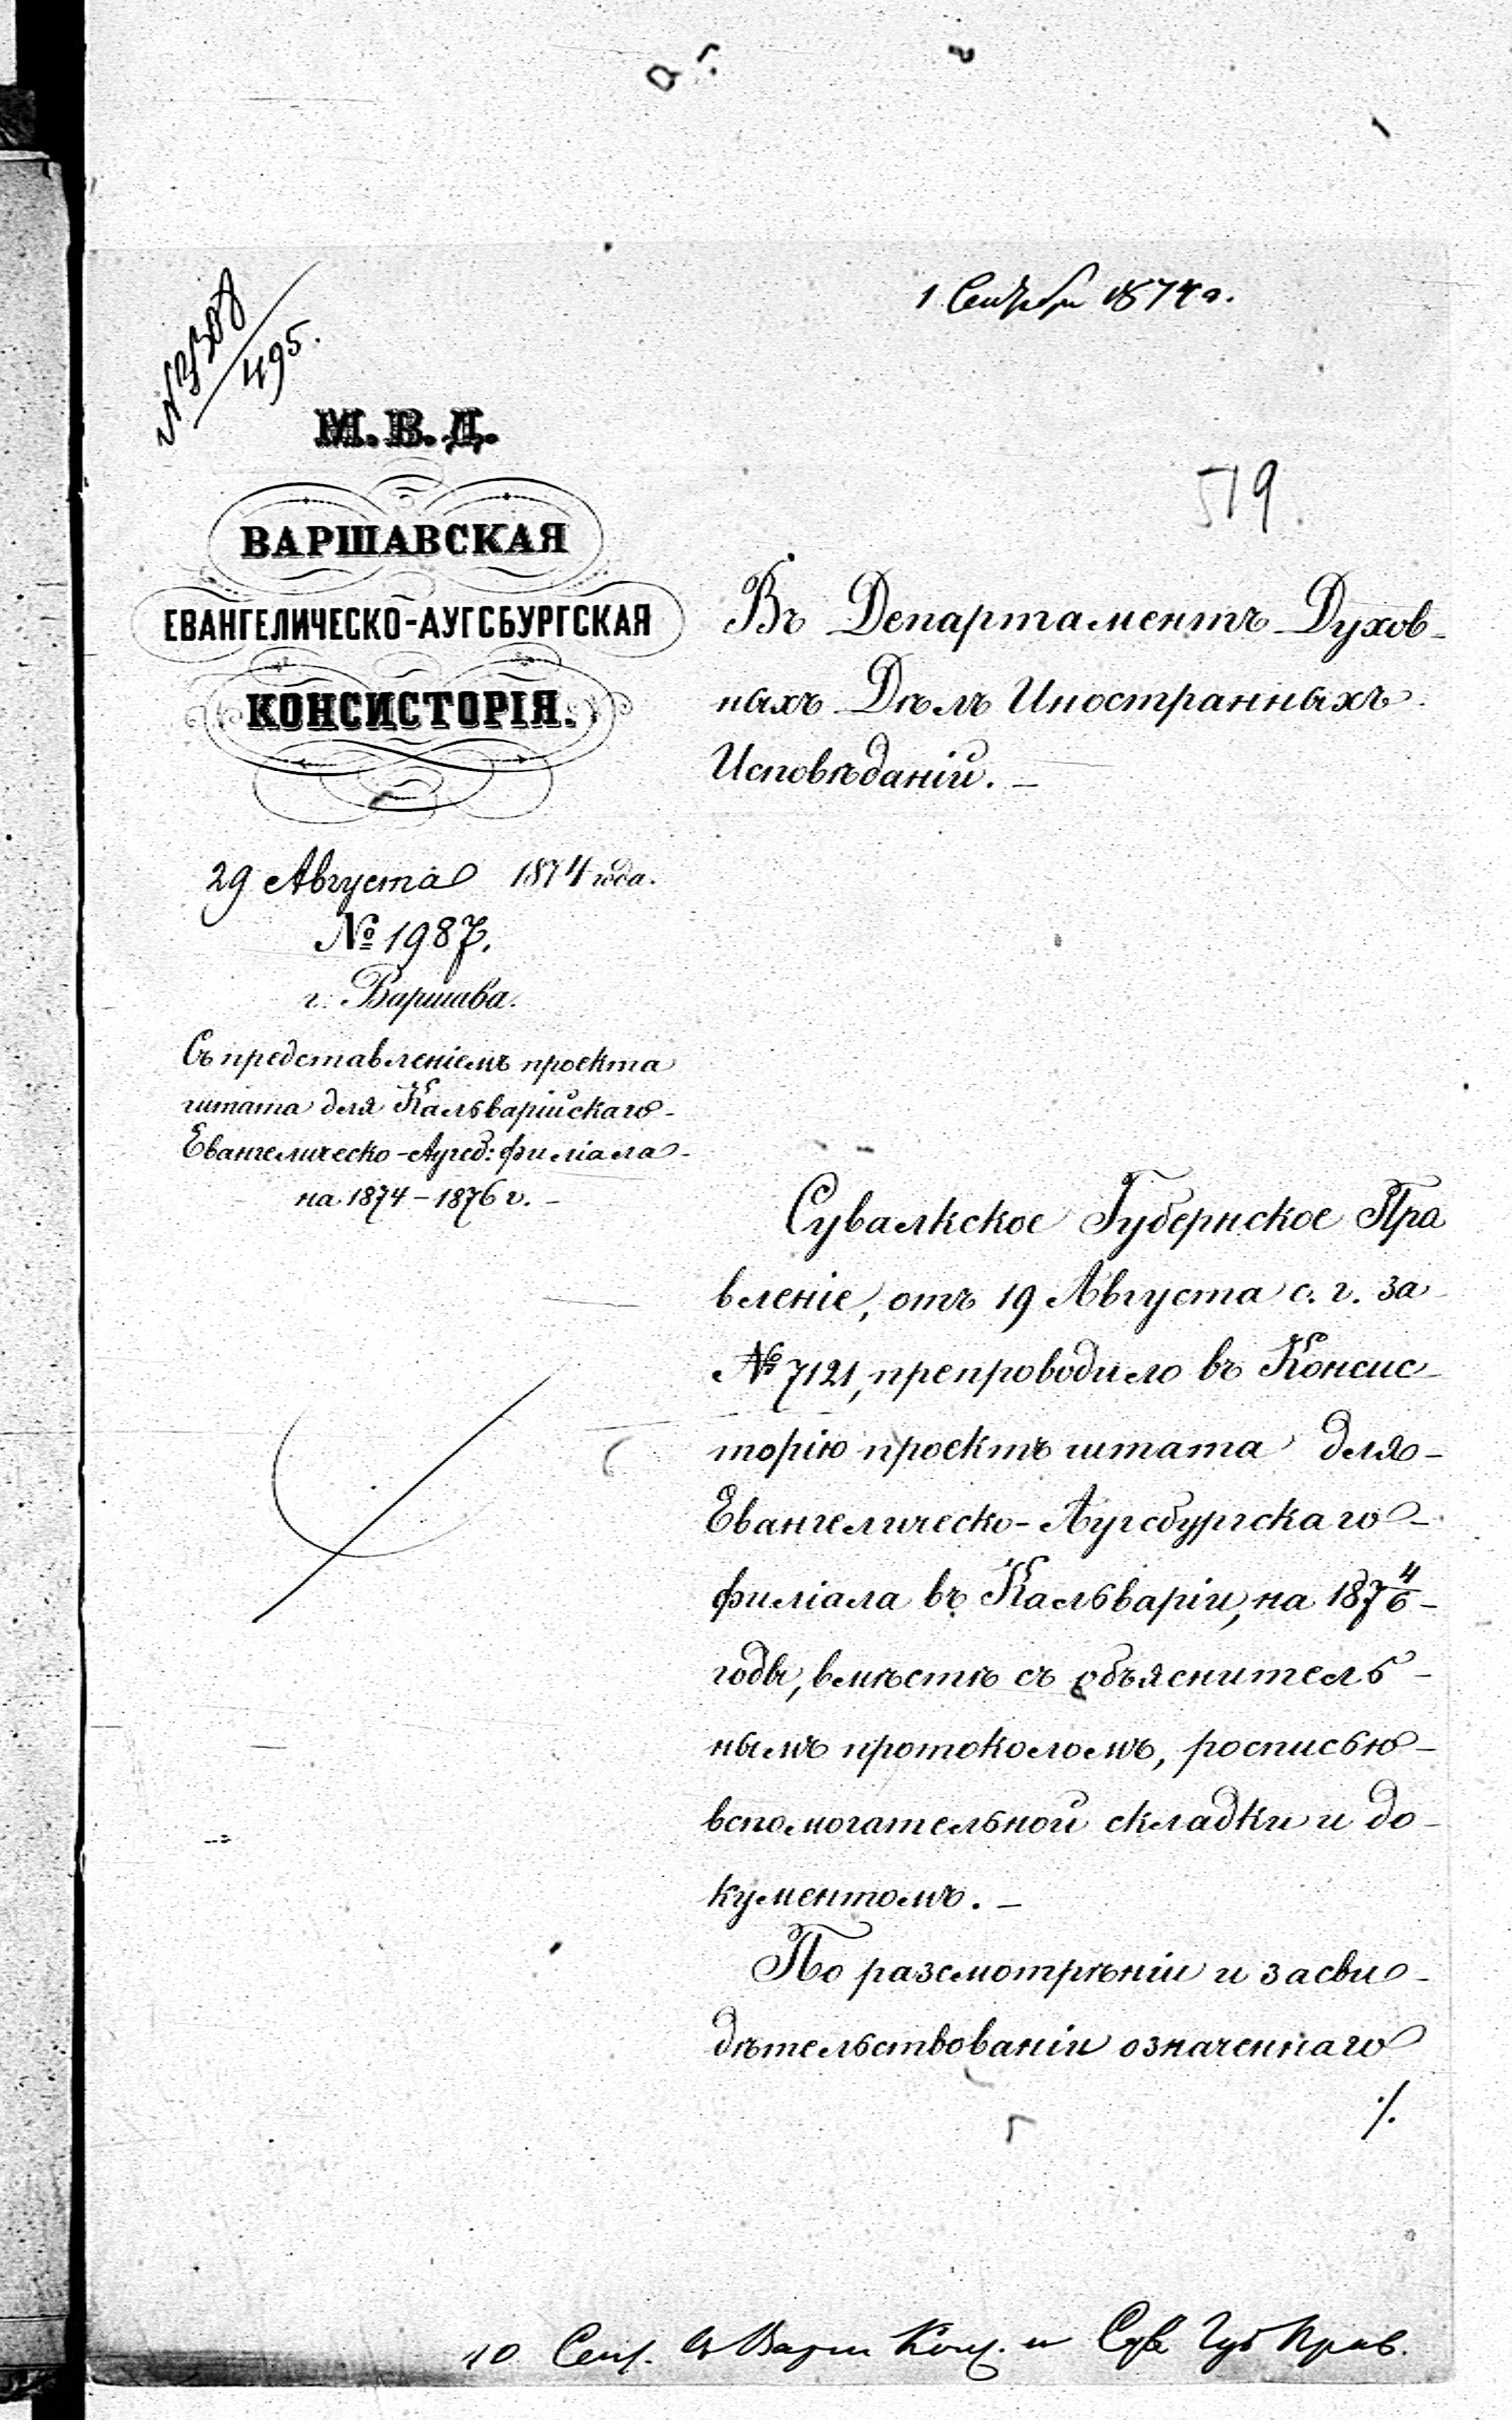 1 Сентября 1874 г.
№ 2308
495.
М. В. Д.
ВАРШАВСКАЯ
ЕВАНГЕЛИЧЕСКО-АУГСБУРГСКАЯ
КОНСИСТОРІЯ.
29 Августа 1874 года.
№ 1987.
г. Варшава.
Съ представленіемъ проекта
штата для Кальварійскаго
Евангелическо-Аугсб: филіала
на 1874 – 1876 г. –
519
Въ Департаментъ Духов-
ныхъ Дѣлъ Иностранныхъ
Исповѣданій. –
Сувалкское Губернское Пра
вленіе, отъ 19 Августа с. г. за
№ 7121, препроводило въ Консис-
торію проектъ штата для
Евангелическо-Аугсбургскаго
филіала въ Кальваріи, на 187 4/6
годы, вмѣстѣ съ объяснитель-
нымъ протоколомъ, росписью
вспомогательной складки и до-
кументомъ. –
По разсмотрѣніи и засви-
дѣтельствованіи означеннаго
./.
10 Сент. В Варш Конс. и Сув Губ Прав.